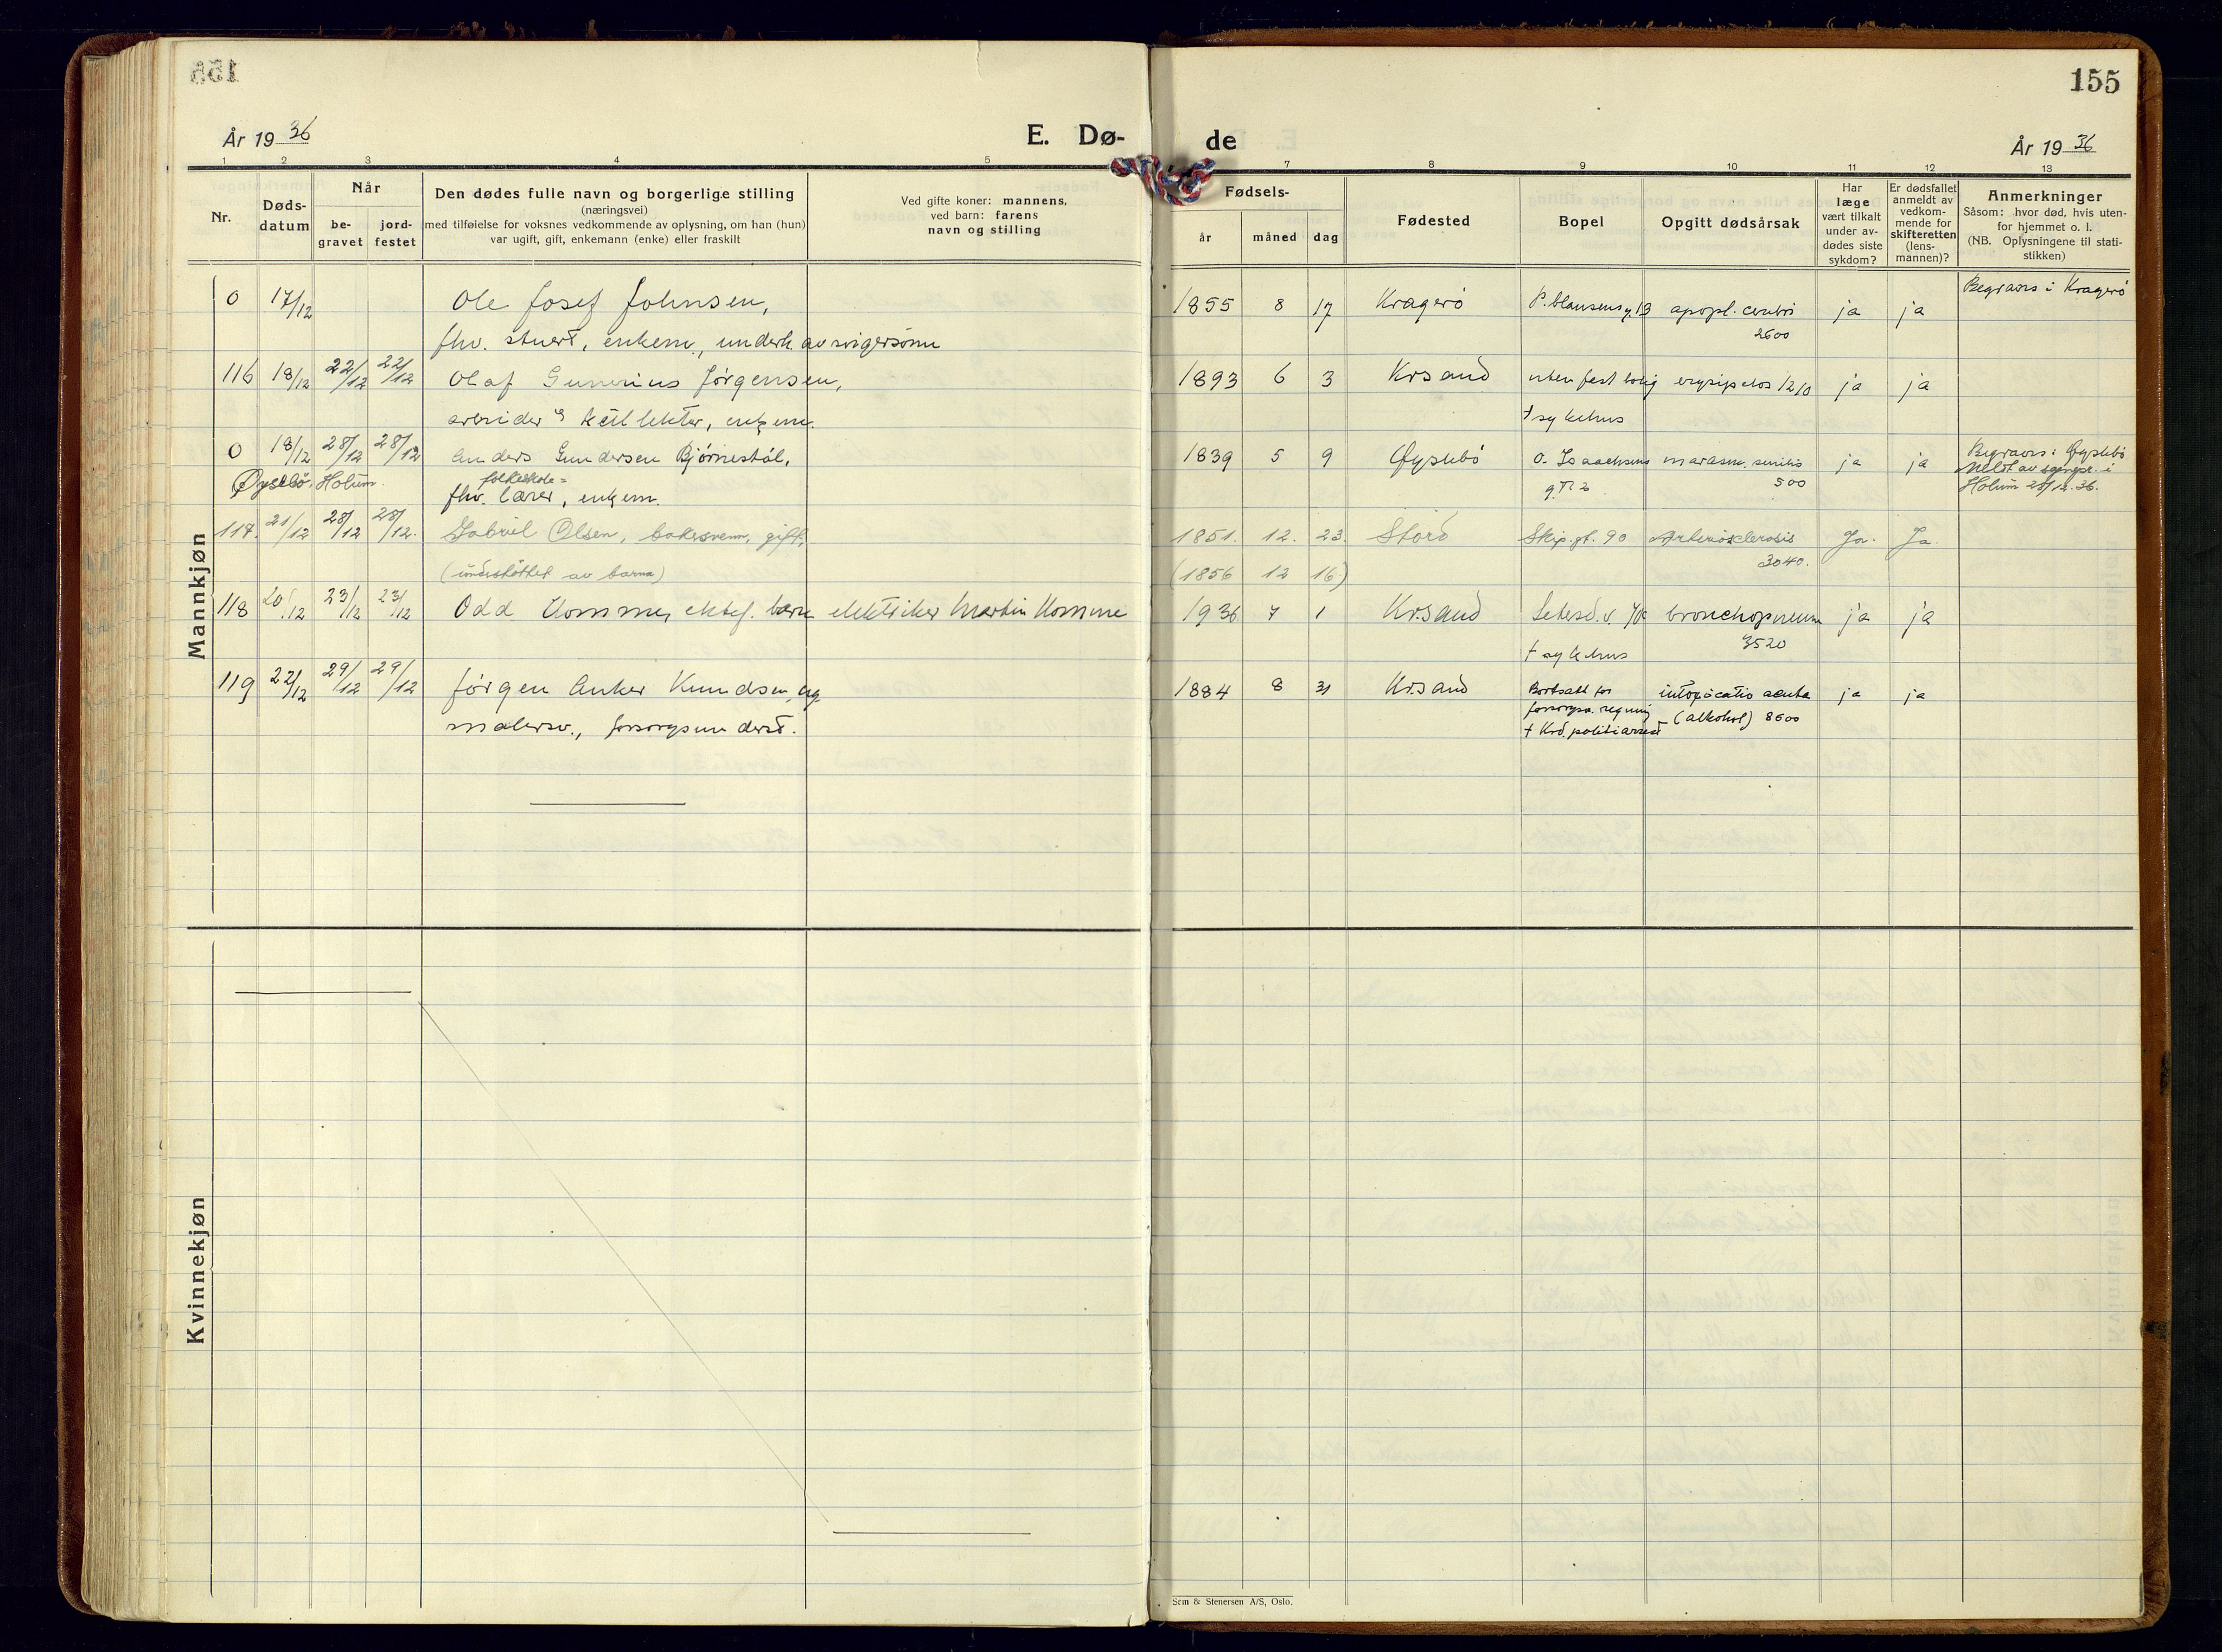 155
År 19 36
E. Dø-
de
År 19 36
1 2 3 4 5
7 8 9 10 11 12 13
Nr.
Døds-
datum
Når
be-
gravet
jord-
festet
Den dødes fulle navn og borgerlige stilling
(næringsvei)
med tilføielse for voksnes vedkommende av oplysning, om han (hun)
var ugift, gift, enkemann (enke) eller fraskilt
Ved gifte koner: mannens,
ved barn: farens
navn og stilling
Fødsels-
år måned dag
Fødested
Bopel
Opgitt dødsårsak
Har
læge
vært tilkalt
under av-
dødes siste
sykdom?
Er dødsfallet
anmeldt av
vedkom-
mende for
skifteretten
(lens-
mannen)?
Anmerkninger
Såsom: hvor død, hvis uten-
for hjemmet o. l.
(NB. Oplysningene til stati-
stikken)
Mannkjøn
0 17/12 Ole Josef Johnsen, 1855 8 17 Kragerö P. Clausensg. 13 apopl. cerebri ja ja Begraves i Kragerö
fhv. stuert, enkem., underh. av svigersønn 2600
116 18/12 22/12 22/12 Olaf Gunerius Jørgensen, 1893 6 3 Krsand uten fast bolig erysipelas 1210 ja ja
arbeider, enkem. † sykehus
0 18/12 28/12 28/12 Anders Gundersen Bjørnestøl, 1839 5 9 Øyslebö O. Isaachsens marasm. senilis ja ja Begraves i Øyslebö
Øyslebö. Holum. folkeskole= g. 500 Meldt av sognepr. i
fhv. lærer, enkem. Holum 28/12.36.
117. 21/12 28/12 28/12. Gabriel Olsen, bakersvenn, gift, 1851. 12. 23. Stord Skip.gt. 90 Arteriosklerosis Ja. Ja.
(understöttet av barna) (1856 12 16) 3040.
118 20/12 23/12 23/12 Odd Homme, ektef. barn elektriker Martin Homme 1936 7 1 Krsand Setesd.v. bronchopneum ja ja
† sykehus 3520
119 22/12 29/12 29/12 Jørgen Anker Knudsen, ug. 1884 8 31 Krsand Bortsatt for intoxicatio acuta ja ja
malersv., forsorgsunderst. forsorgsv. regning (alkohol) 8600
† Krd. politiarrest
Kvinnekjøn
Sem & Stenersen A/S, Oslo.